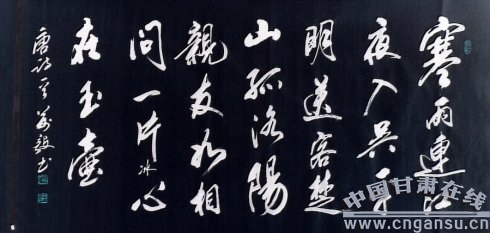 寒雨連江
夜入吴平
明送客楚
山孤洛陽
親友如相
問一片冰心
在玉壺
唐诗 书
中国甘肃在线
www.cngansu.cn